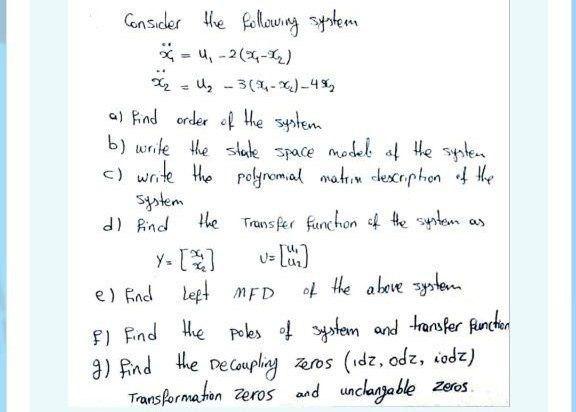 Consider the following system
ẍ₁ = u₁ - 2(x₁-x₂)
ẍ₂ = u₂ - 3(x₁-x₂)-4x₂
a) Find order of the system
b) write the state space model of the system
c) write the polynomial matrix description of the
system
d) Find the Transfer function of the system as
Y= [x₁ x₂] U= [u₁ u₂]
e) Find Left MFD of the above system
f) Find the poles of system and transfer function
g) find the Decoupling zeros (idz, odz, iodz)
Transformation zeros and unchangable zeros.